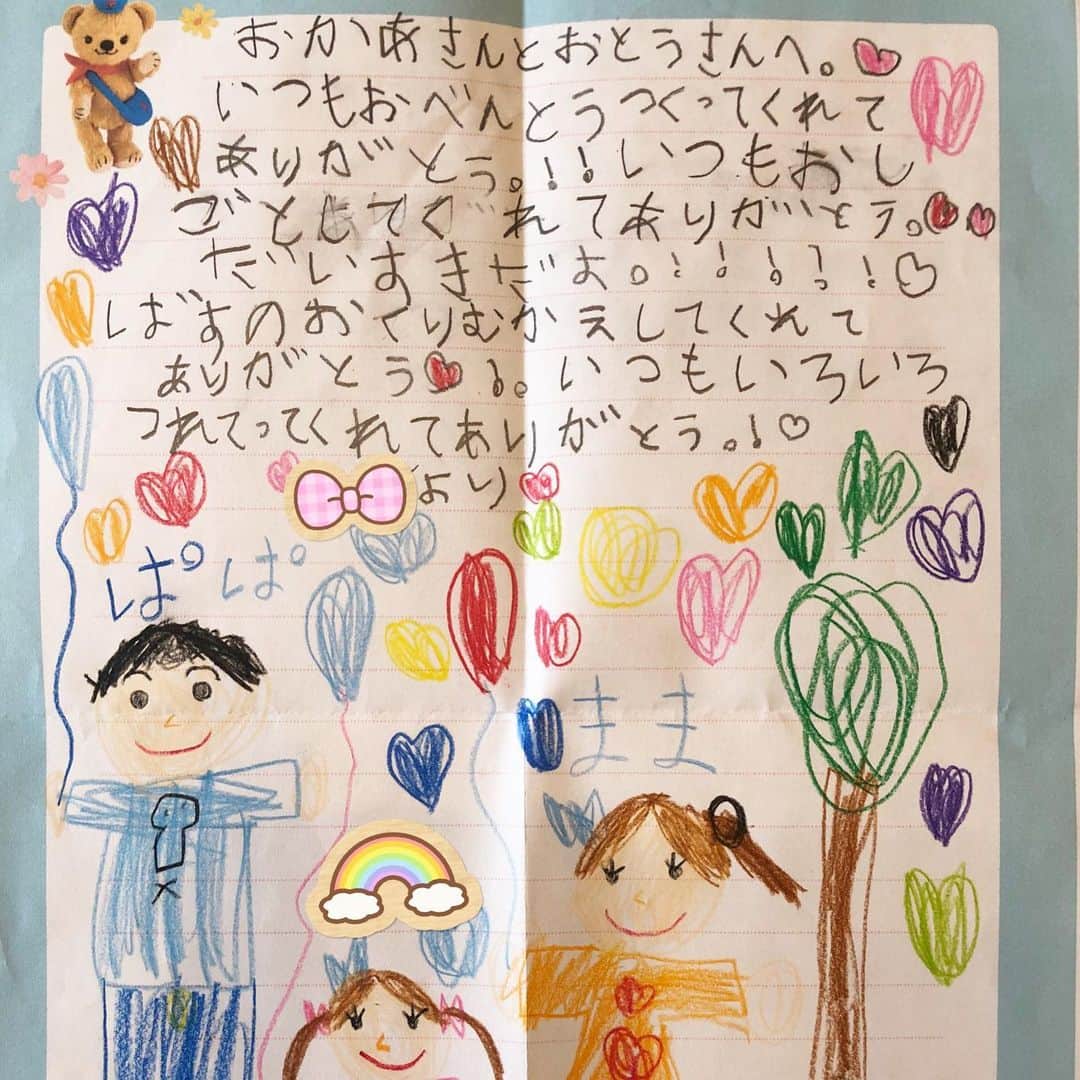 おかあさんとおとうさんへ。
いつもおべんとうつくってくれて
ありがとう。!!いつもおし
ごとしてくれてありがとう。
だいすきだよ。!!!!!
ばすのおくりむかえしてくれて
ありがとう!。いつもいろいろ
つれてってくれてありがとう。!
より
ぱぱ
まま